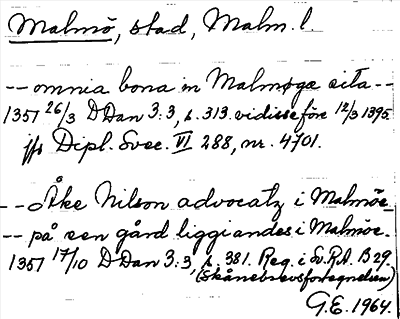 Malmö, stad, Malm. l.
-- omnia bona in Malmøgæ sita --
1351 26/3 DDan 3:3, s. 313. vidisse före 12/3 1395.
jfr Dipl. Svec. VI 288, nr. 4701.
-- Åke Nilson advocatz i Malmöe
-- på sen gård liggiandes i Malmöe.
1351 17/10 DDan 3:3, s. 381. Reg. i Sv.R.A. B 29.
(Skånebrevsfortegnelsen)
G.E. 1964.